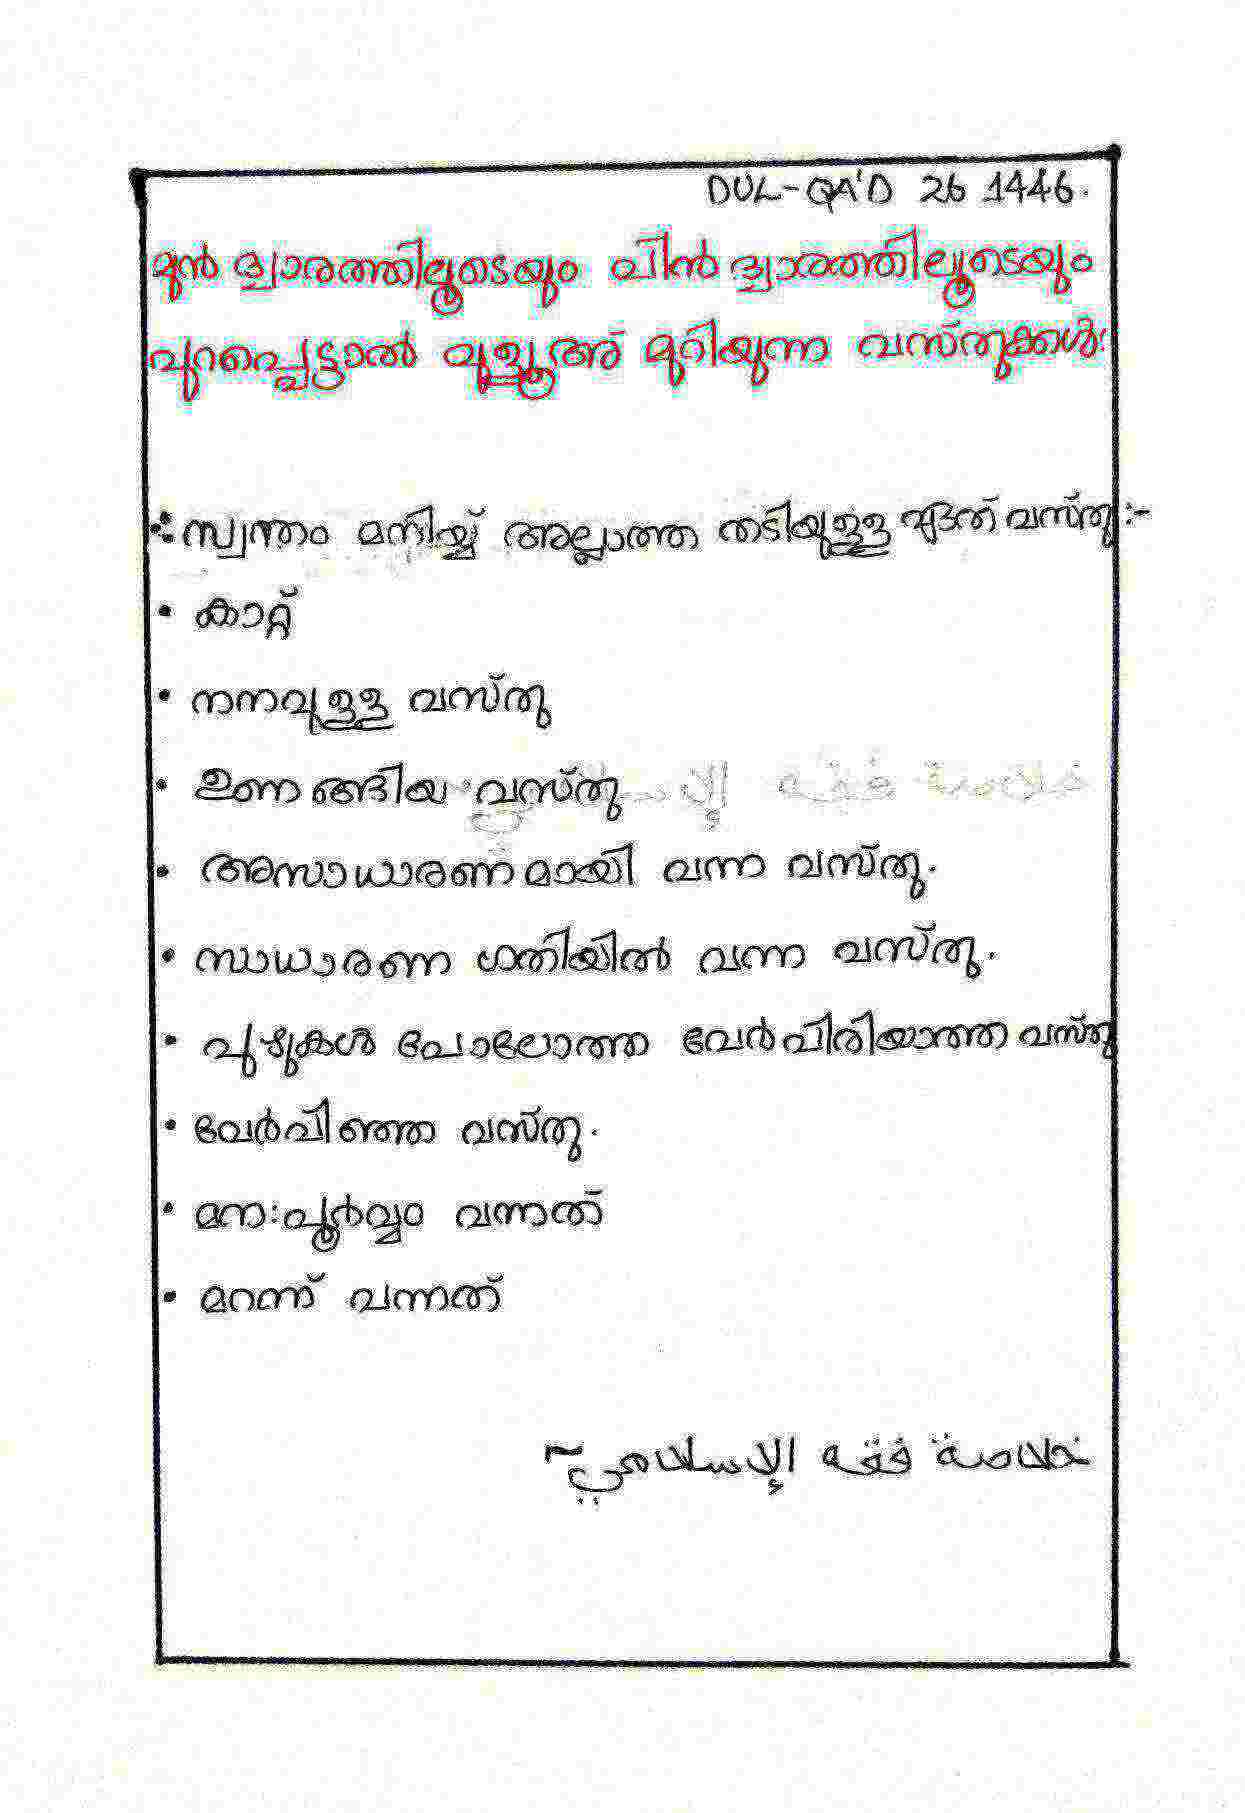 DUL-QA'D 26 1446.
മുൻ ദ്വാരത്തിലൂടെയും പിൻ ദ്വാരത്തിലൂടെയും
പുറപ്പെട്ടാൽ വുളൂഅ് മുറിയുന്ന വസ്തുക്കൾ:
സ്വന്തം മനിയ്യ് അല്ലാത്ത തടിയുള്ള ഏത് വസ്തു :-
• കാറ്റ്
• നനവുള്ള വസ്തു
• ഉണങ്ങിയ വസ്തു
• അസാധാരണമായി വന്ന വസ്തു.
• സാധാരണ ഗതിയിൽ വന്ന വസ്തു.
• പുഴുകൾ പോലോത്ത വേർപിരിയാത്ത വസ്തു
• വേർപിഞ്ഞ വസ്തു.
• മന:പൂർവ്വം വന്നത്
• മറന്ന് വന്നത്
خلاصة فقه الإسلامي~